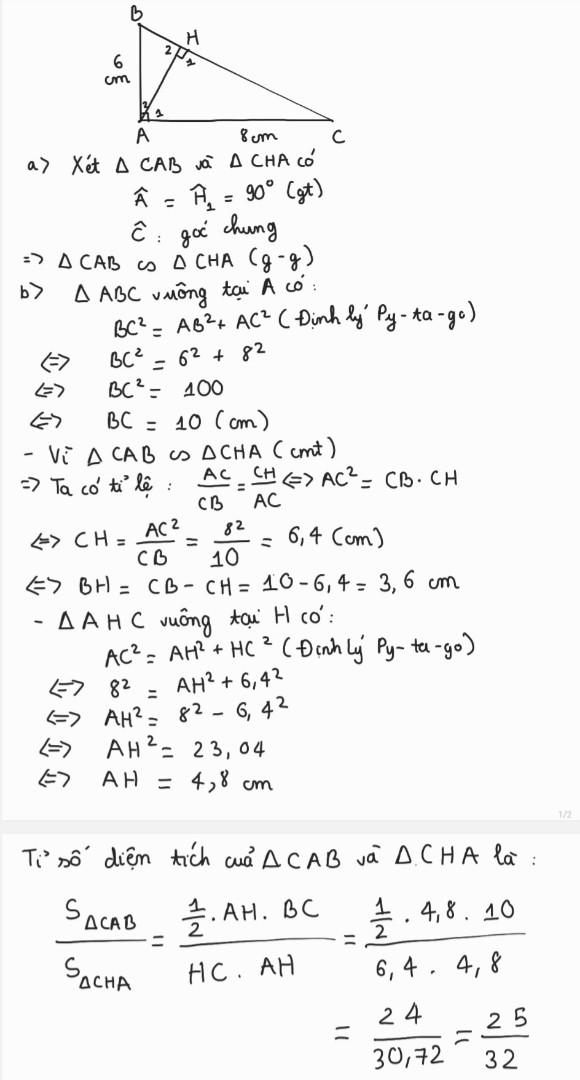 B
H
2
1
6
cm
2
1
A
8cm
C
a> Xét Δ CAB và Δ CHA có
Â = Ĥ₁ = 90° (gt)
Ĉ : góc chung
=> Δ CAB ∽ Δ CHA (g-g)
b> Δ ABC vuông tại A có:
BC² = AB² + AC² (Định lý Py-ta-go)
<=> BC² = 6² + 8²
<=> BC² = 100
<=> BC = 10 (cm)
- Vì Δ CAB ∽ ΔCHA (cmt)
=> Ta có tỉ lệ : AC/CB = CH/AC <=> AC² = CB . CH
<=> CH = AC²/CB = 8²/10 = 6,4 (cm)
<=> BH = CB - CH = 10 - 6,4 = 3,6 cm
- Δ AHC vuông tại H có:
AC² = AH² + HC² (Định lý Py-ta-go)
<=> 8² = AH² + 6,4²
<=> AH² = 8² - 6,4²
<=> AH² = 23,04
<=> AH = 4,8 cm
1/2
Tỉ số diện tích cuả Δ CAB và Δ CHA là :
S ΔCAB / S ΔCHA = (1/2 . AH . BC) / (HC . AH) = (1/2 . 4,8 . 10) / (6,4 . 4,8)
= 24/30,72 = 25/32